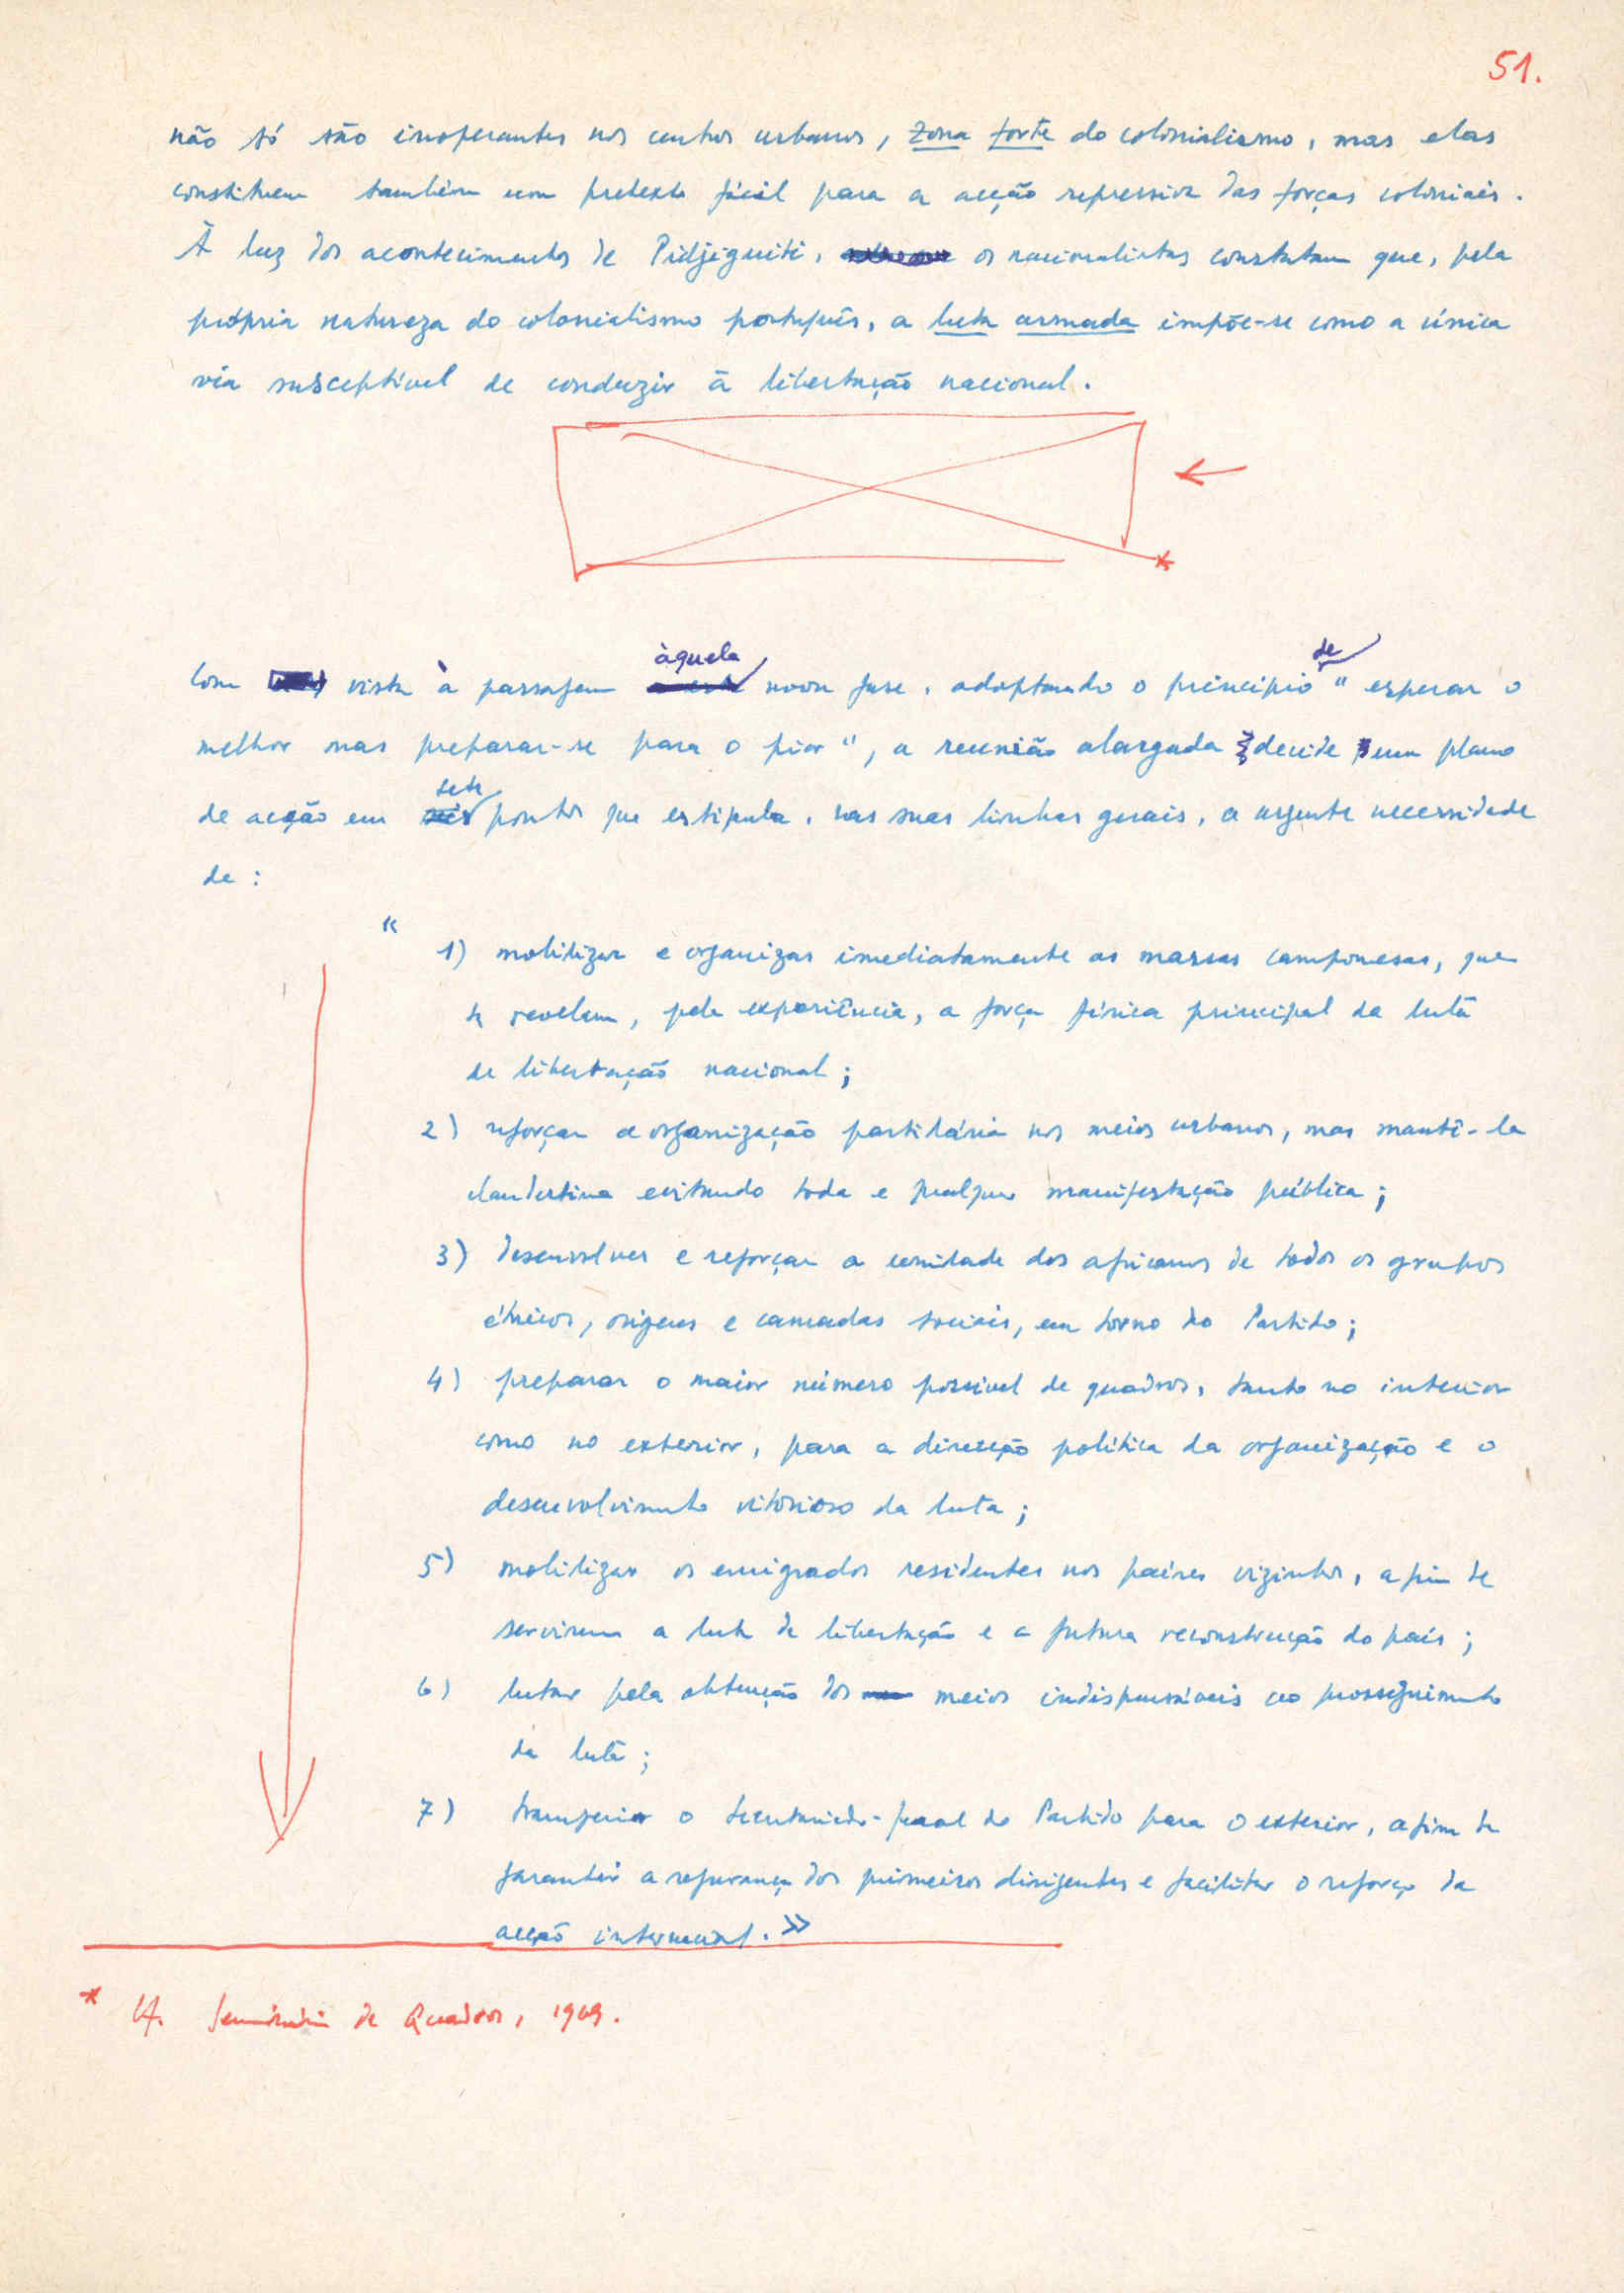 51.
não só são inoperantes nos centros urbanos, zona forte do colonialismo, mas elas
constituem também um pretexto fácil para a acção repressiva das forças coloniais.
À luz dos acontecimentos de Pidjiguiti, os nacionalistas constatam que, pela
própria natureza do colonialismo português, a luta armada impõe-se como a única
via susceptível de conduzir à libertação nacional.
Com vista à passagem àquela nova fase, adoptando o princípio de "esperar o
melhor mas preparar-se para o pior", a reunião alargada decide um plano
de acção em sete pontos que estipula, nas suas linhas gerais, a urgente necessidade
de :
"
1) mobilizar e organizar imediatamente as massas camponesas, que
se revelam, pela experiência, a força física principal da luta
de libertação nacional ;
2) reforçar a organização partidária nos meios urbanos, mas mantê-la
clandestina evitando toda e qualquer manifestação pública ;
3) desenvolver e reforçar a unidade dos africanos de todos os grupos
étnicos, origens e camadas sociais, em torno do Partido ;
4) preparar o maior número possível de quadros, tanto no interior
como no exterior, para a direcção política da organização e o
desenvolvimento vitorioso da luta ;
5) mobilizar os emigrados residentes nos países vizinhos, a fim de
servirem a luta de libertação e a futura reconstrução do país ;
6) lutar pela obtenção dos meios indispensáveis ao prosseguimento
da luta ;
7) transferir o Secretariado-geral do Partido para o exterior, a fim de
garantir a segurança dos primeiros dirigentes e facilitar o reforço da
acção internacional. »
* Seminário de Quadros, 1969.